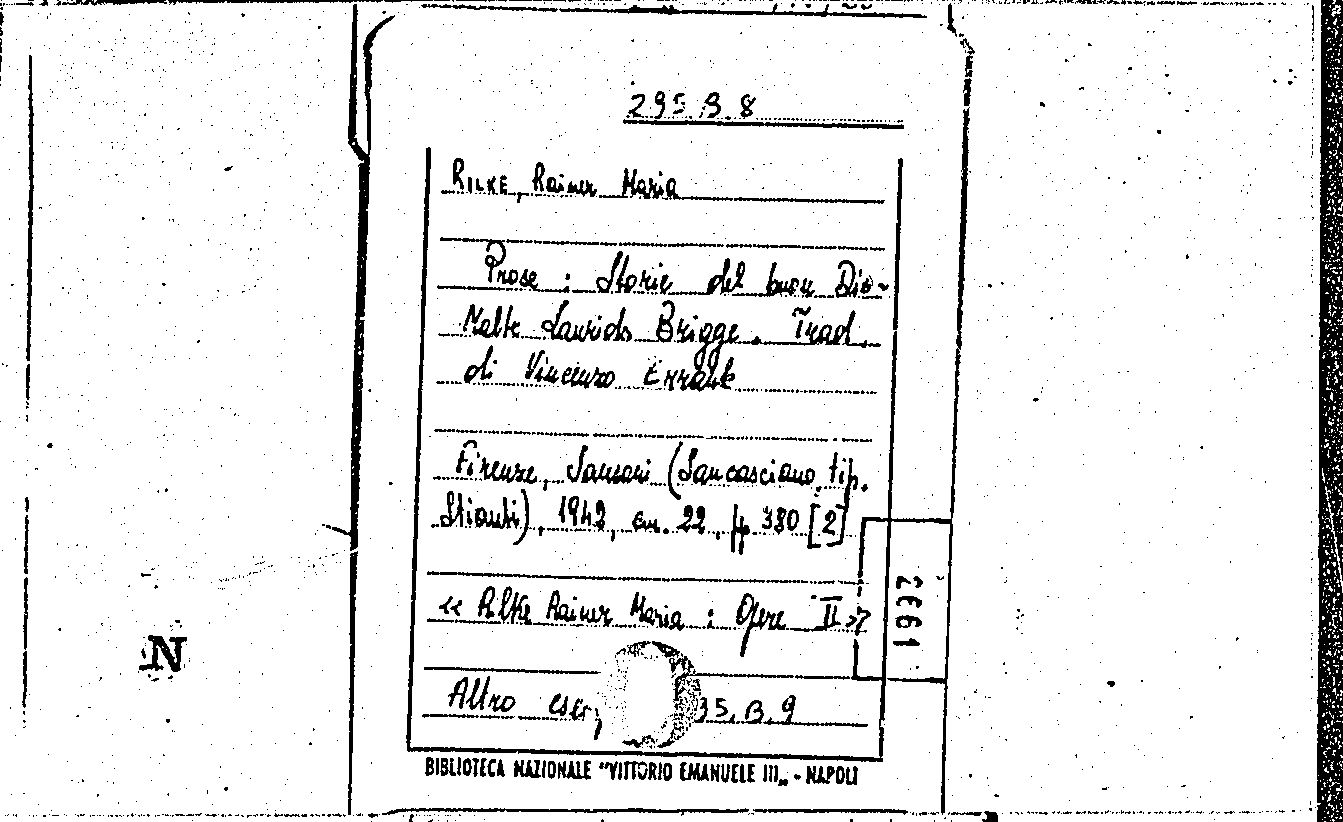 295.B.8
RILKE, Rainer Maria
Prose : Storie del buon Dio -
Malte Laurids Brigge. Trad.
di Vincenzo Errante
Firenze, Sansoni (Sancasciano, tip.
Stianti), 1942, cm. 22, pp. 380 [2]
2661
« Rilke Rainer Maria : Opere II »
Altro 35.B.9
BIBLIOTECA NAZIONALE "VITTORIO EMANUELE III„ - NAPOLI
N